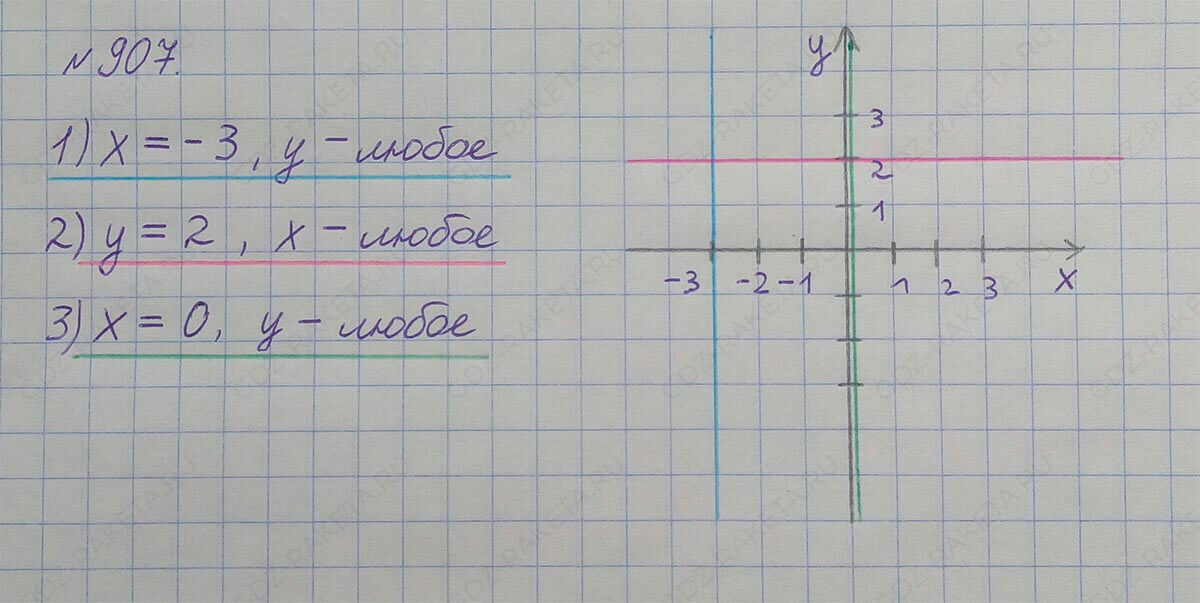 №907.
1) x = -3, y - любое
2) y = 2, x - любое
3) x = 0, y - любое
y
3
2
1
-3 -2 -1 1 2 3 x
GDZ-RAKETA.RU